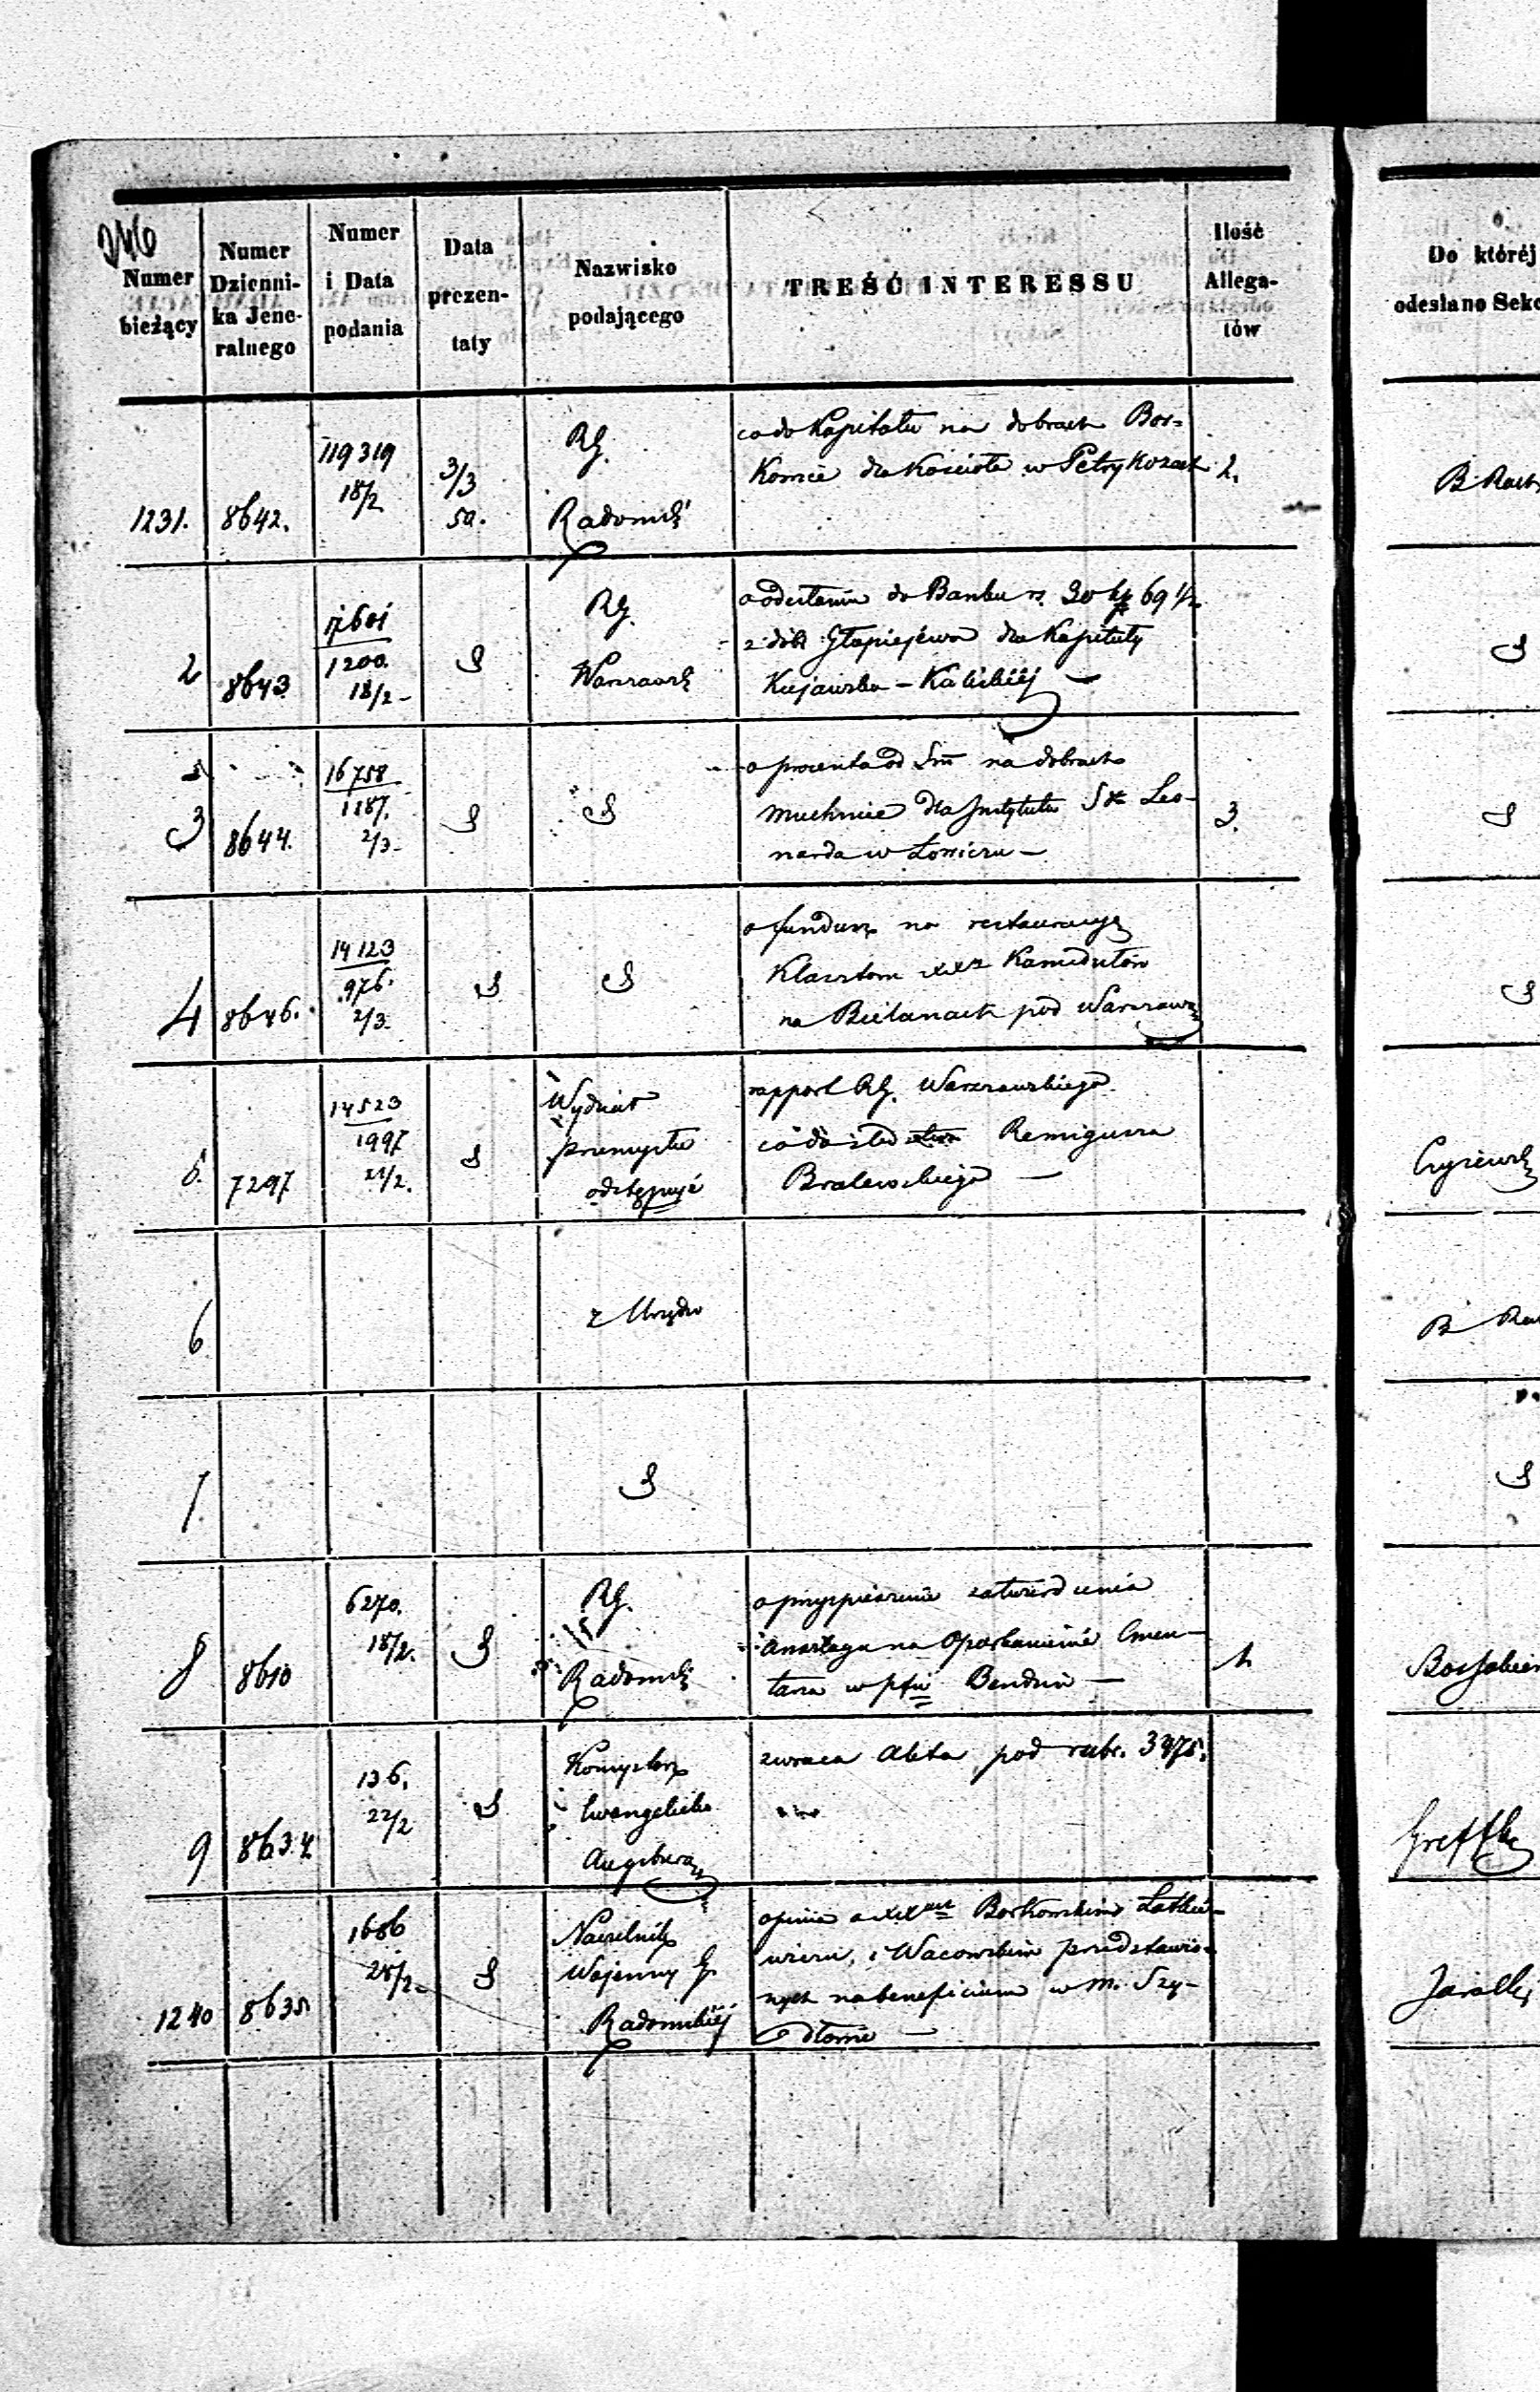 246
Numer bieżący
Numer Dzienni-ka Jene-ralnego
Numer i Data podania
Data prezen-taty
Nazwisko podającego
TREŚĆ INTERESSU
Ilość Allega-tów
Do której
odesłano Sekc
1231. 8642. 119319 18/2 3/3 50. RG. Radomski
co do Kapitału na dobrach Bor=
Kowie dla Kościoła w Petrykozach 2.
2 8643 17601 1200. 18/2 - RG. Warszawski
o odesłanie do Banku rs. 30 kp 69 1/2
z dóbr Głapiejewo dla Kapituły
Kujawsko - Kaliskiéj -
3 8644. 16758 1187. 2/3 -
o procenta od Sm̃ na dobrach
dla Instytutu Sgo Leo-
narda w Łowiczu - 3.
4 8646. 14123 976. 2/3.
o fundusz na restauracyę
Klasztoru xxx Kamedułów
na Bielanach pod Warszawą
5. 7297 14523 1997 21/2. Wydział przemysłu odstępuje
rapport RG. Warszawskiego
co do Remigiusza
Bralewskiego -
6 z Urzędu
7
8 8610 6270. 18/2. RG. Radomski
o przyspieszenie zatwierdzenia
Anszlagu na oparkanienie Cmen-
tarza w pfii Bendzin - 1.
9 8634 136. 22/2 Konsystorz Ewangelicko Augsburg
zwraca Akta pod rubr. 3975.
Greffke
1240 8635 1686 28/2 Naczelnik Wojenny G. Radomskiéj
opinia o xxach Borkowskim Latkie-
wiczu, i Wacowskim przedstawio-
nych na beneficium w m. Szy-
dłowie -